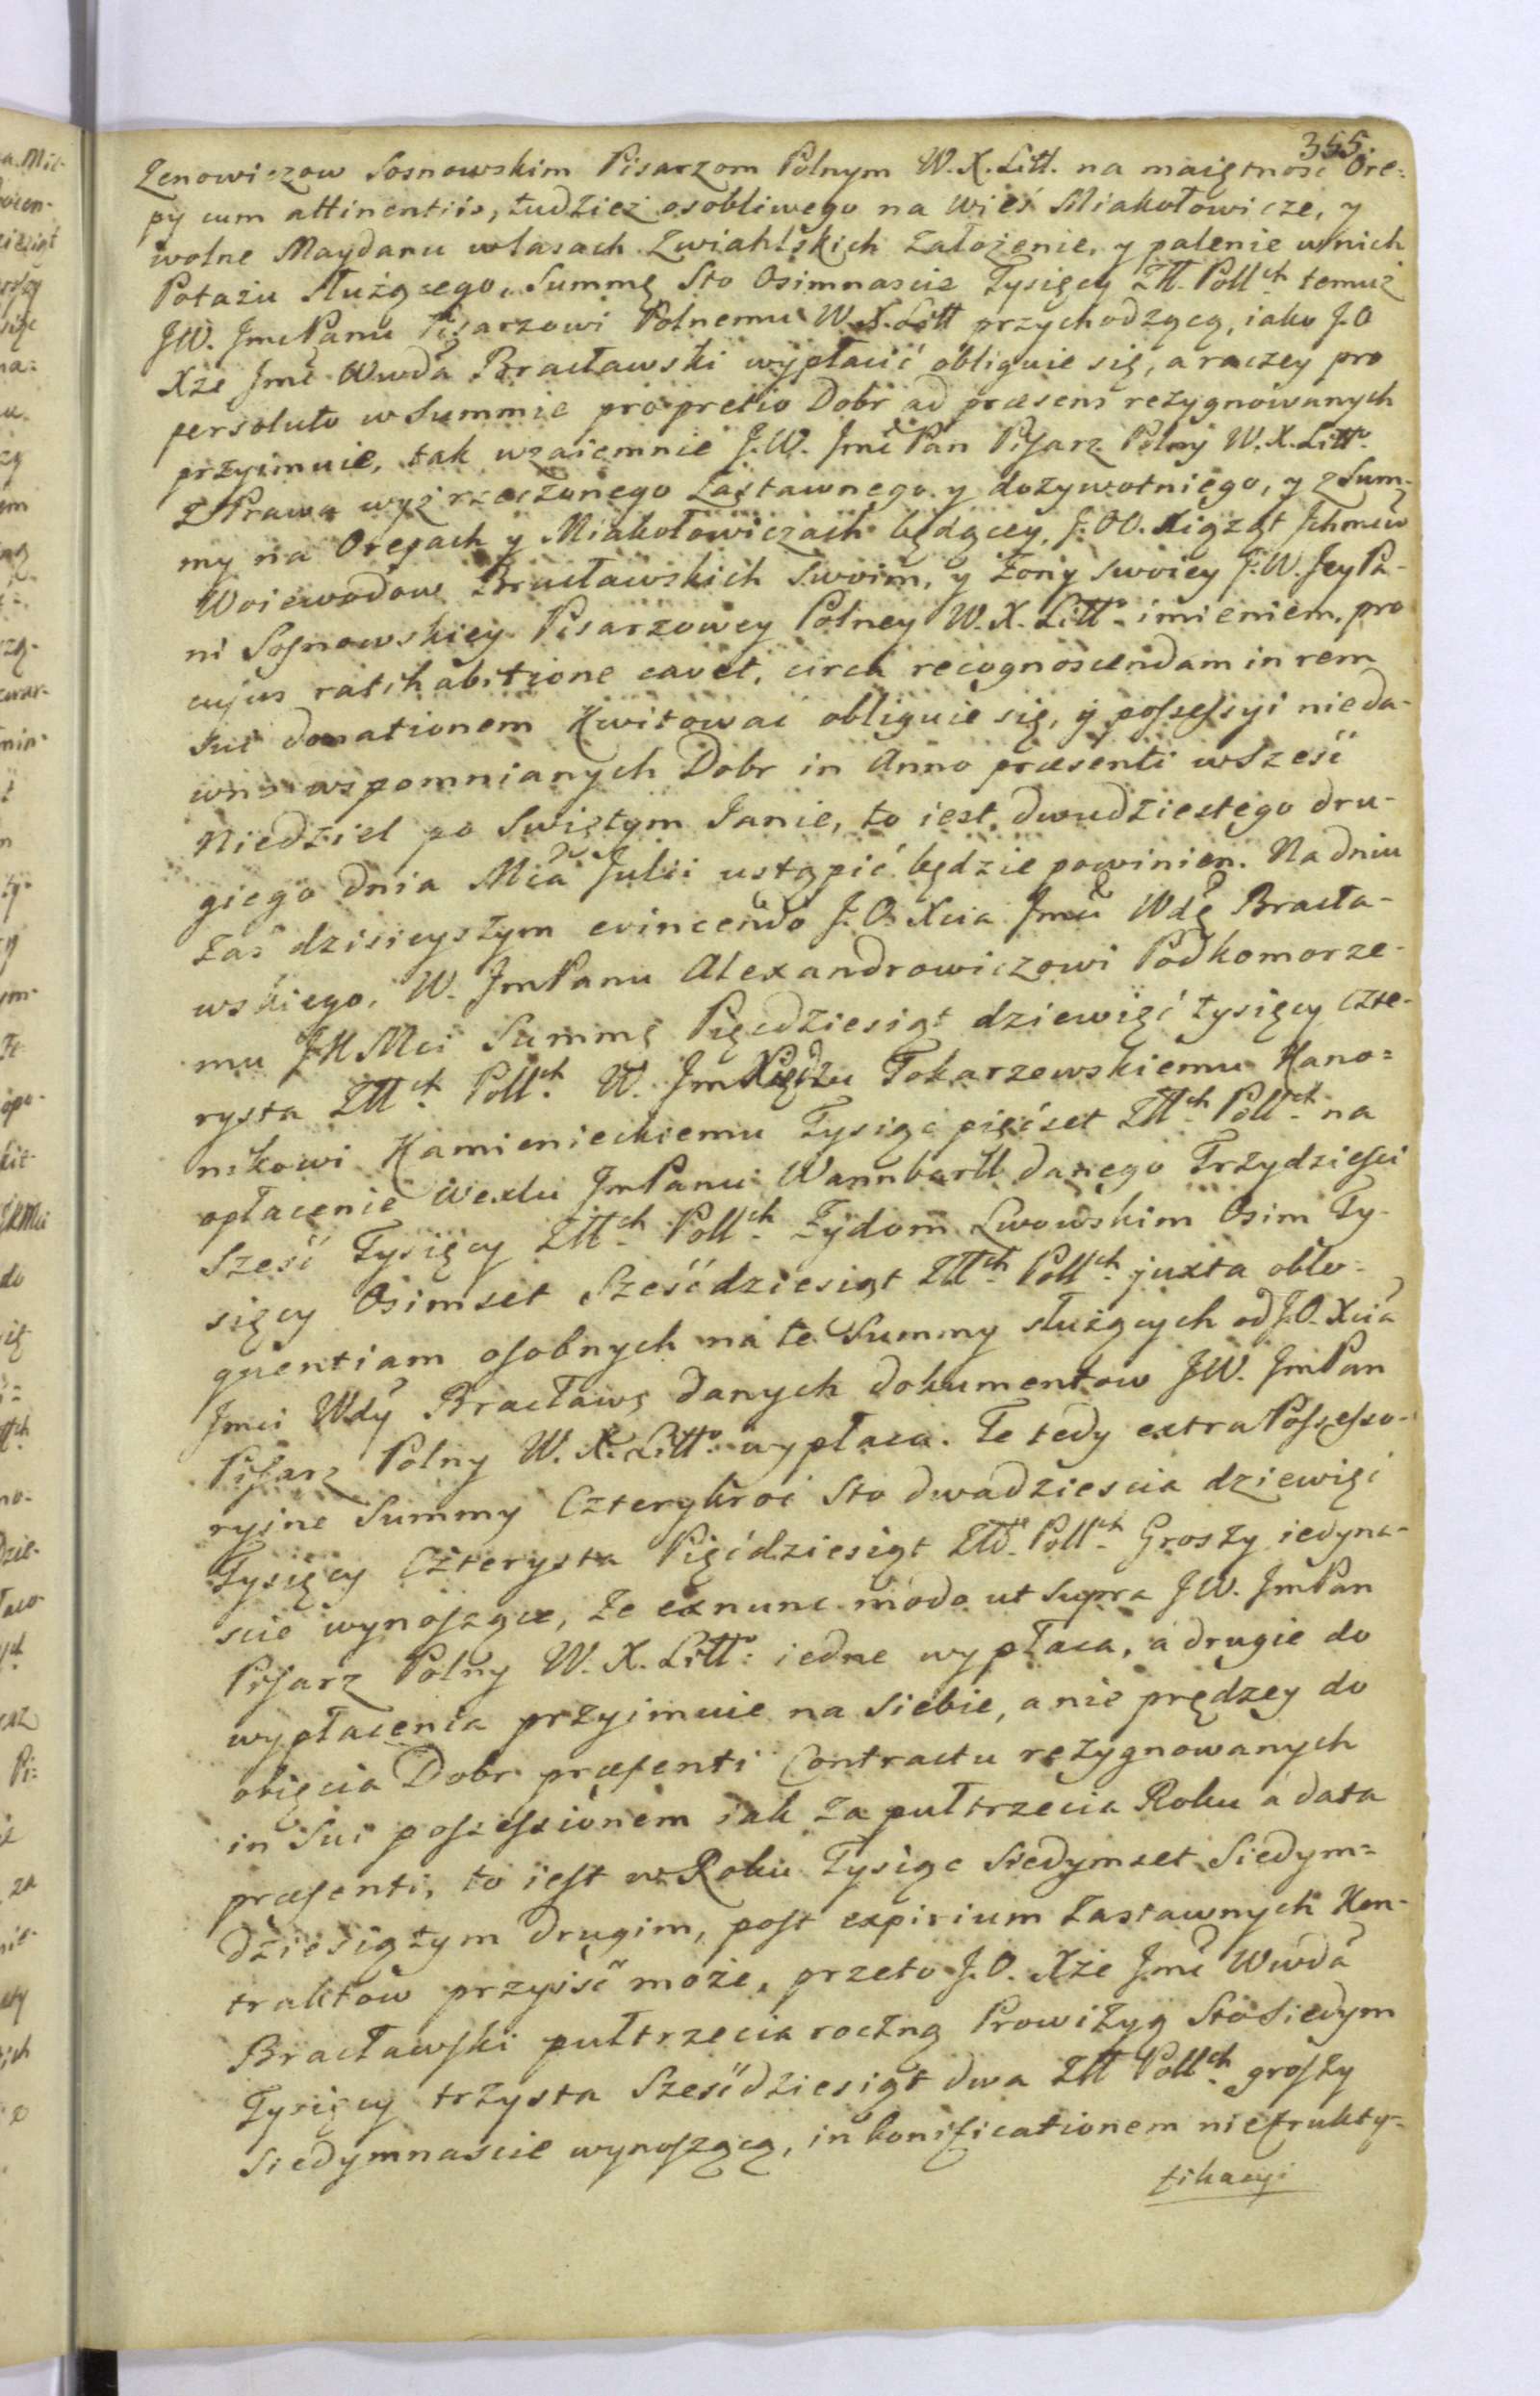 355.
Zenowiczow Sosnowskim Pisarzom Polnym W. X. Litt. na maiętnosc Ore-
py cum attinentiis, tudziez osobliwego na wieś Miakołowicze, y
wolne Maydanu w lasach Zwiahlskich założenie, y palenie w nich
Potażu służącego, Summę Sto Osimnascie Tysięcy Zll. Pollch temuż
JW. JmcPanu Pisarzowi Polnemu W. X. Litt przychodzącą, iako J.O
Xze Jmć Wwda Bracławski wypłacić obliguie się, a raczey pro
persoluto w Summie pro pretio Dobr ad præsens rezygnowanych
przyimuie, tak wzaiemnie J.W. Jmć Pan Pisarz Polny W. X. Litto
z Prawa wyż rzeczonego Zastawnego y dożywotniego, y z Sum-
my na Orepach y Miakołowiczach będącey, J: OO. Xiążąt Ichmciow
Woiewodow Bracławskich Swoim, y Żony swoiey J.W. JeyPa-
ni Sosnowskiey Pisarzowey Polney W. X. Litto imieniem, pro
cujus ratihabitione cavet, circa recognoscendam in rem
sui donationem Kwitować obliguie się, y possessyi nieda-
wno wspomnianych Dobr in Anno præsenti w Sześć
Niedziel po Swiętym Janie, to iest dwudziestego dru-
giego dnia Mca Julii ustąpić będzie powinien. Na dniu
zaś dzisieyszym evincendo J. O. Xcia Jmci Wdę Bracła-
wskiego, W. JmPanu Alexandrowiczowi Podkomorze-
mu JKMci Summę Pięćdziesiąt dziewięć tysięcy czte-
rysta Zllch Pollch W. JmXiędzu Tokarzewskiemu Kano=
nikowi Kamienieckiemu Tysiąc pięćset Zllch Pollch na
opłacenie Wexlu JmPanu Wannbarll danego Trzydzieści
Sześć Tysięcy Zllch Pollch Żydom Lwowskim Osim Ty-
sięcy Osimset Sześćdziesiąt Zllch Pollch juxta oblo-
quentiam osobnych na te Summy służących od J.O. Xcia
Jmci Wdy Bracławs danych dokumentow JW. JmPan
Pisarz Polny W. X. Litto wypłaca. Te tedy extra Possesso-
ryine Summy Czterykroć Sto dwadziescia dziewięć
Tysięcy Czterysta Pięćdziesiąt Złł. Pollch Groszy iedyna-
scie wynoszące, że ex nunc modo ut supra JW. JmPan
Pisarz Polny W. X. Litto: iedne wypłaca, a drugie do
wypłacenia przyimuie na siebie, a nie prędzey do
obięcia Dobr præsenti Contractu rezygnowanych
in sui possessionem iak za pułtrzecia Roku a data
præsenti, to iest w Roku Tysiąc Siedymset Siedym=
dziesiątym drugim, post expirium Zastawnych Kon-
traktow przyiść może, przeto J.O. Xże Jmć Wwda
Bracławski pułtrzecia roczną Prowizyą Sto Siedym
Tysięcy trzysta Sześćdziesiąt dwa Zll Pollch groszy
Siedymnascie wynoszącą, in bonificationem niefrukty-
fikacyi